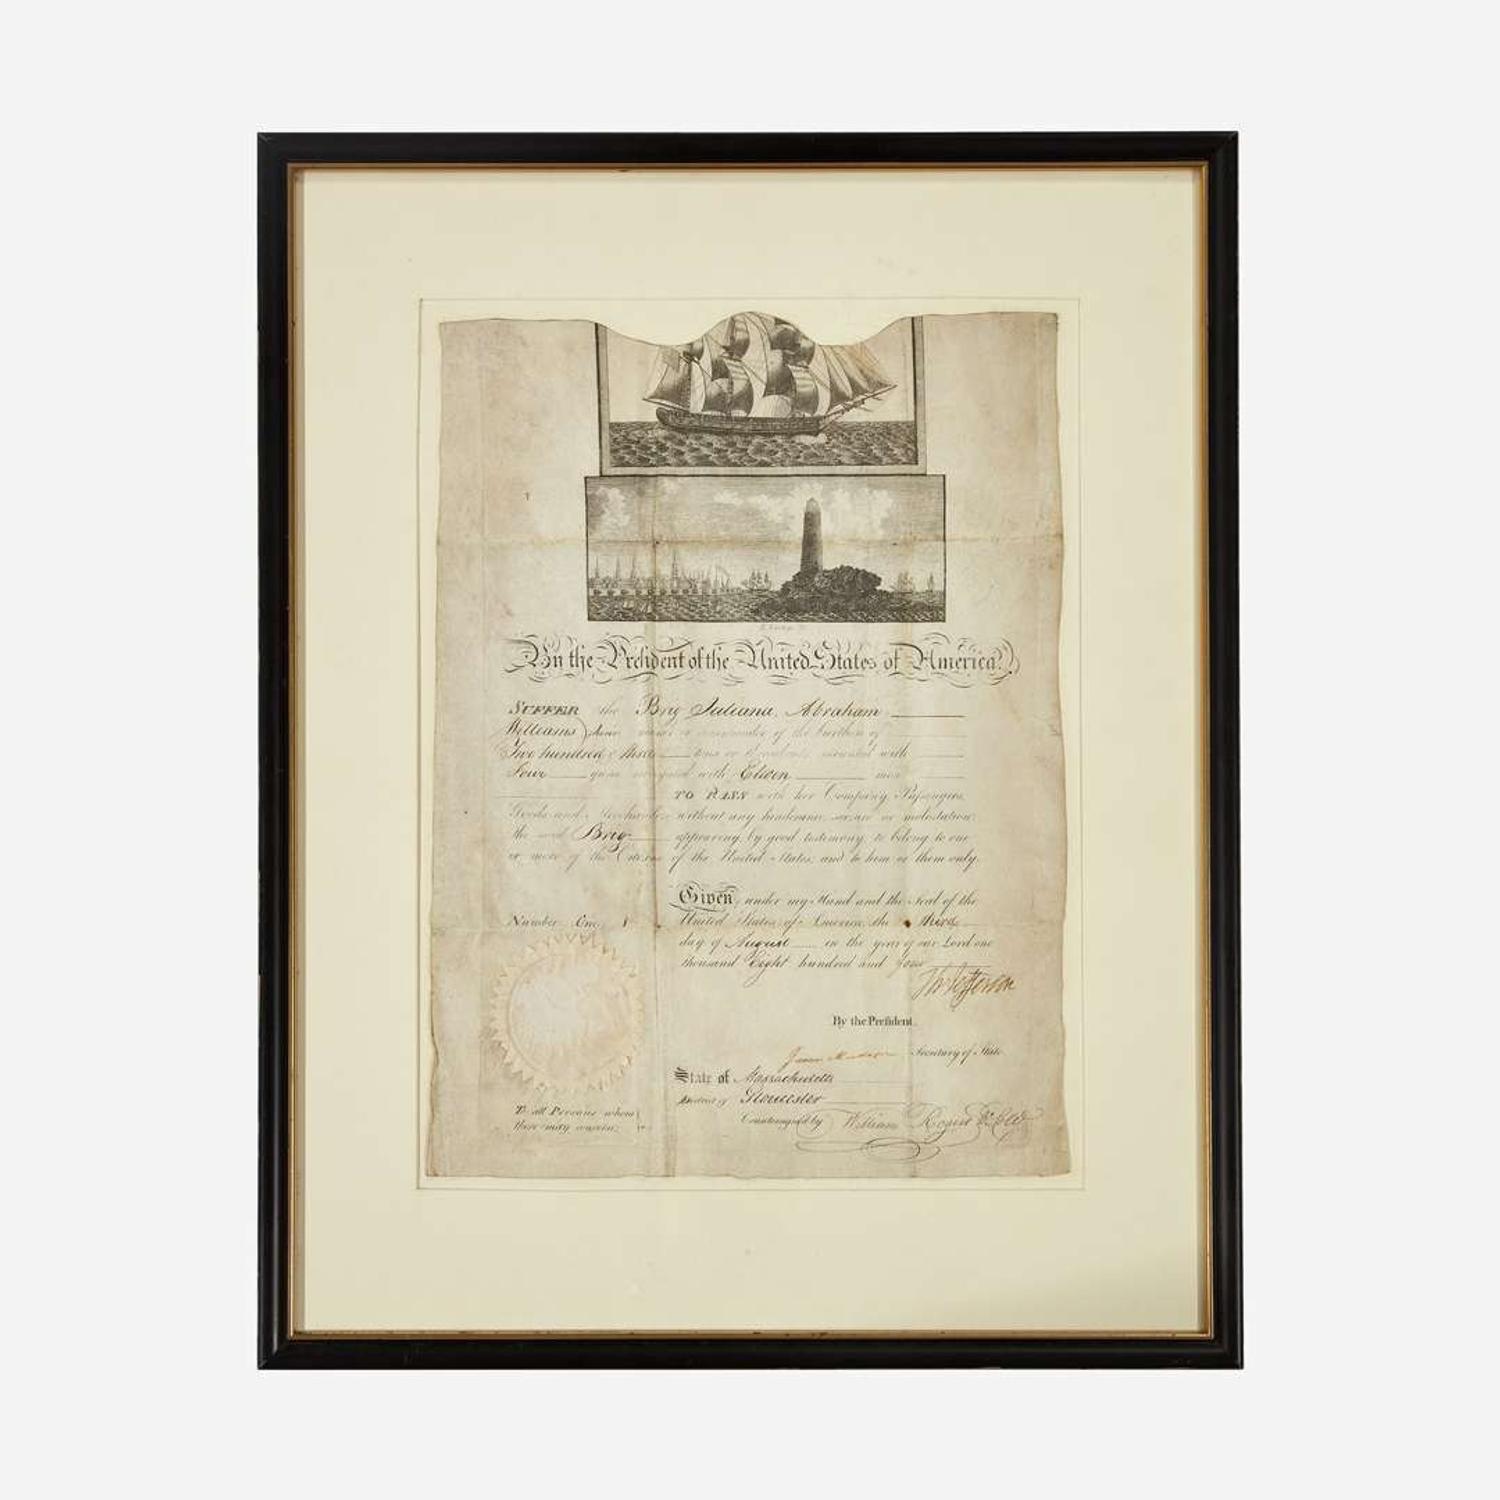 By the President of the United States of America.
SUFFER the Brig Juliana, Abraham
Williams master or commander of the burthen of
Two hundred & three tons or thereabouts mounted with
Four guns navigated with Eleven men
TO PASS with her Company, Passengers,
Goods and Merchandize without any hinderance, seizure or molestation
the said Brig appearing by good testimony to belong to one
or more of the Citizens of the United States; and to him or them only.
Given under my Hand and the Seal of the
Number One United States of America, the third
day of August in the year of our Lord one
thousand Eight hundred and four
Th Jefferson
By the President.
James Madison Secretary of State
State of Massachusetts
District of Gloucester
To all Persons whom
these may concern.
Countersigned by William